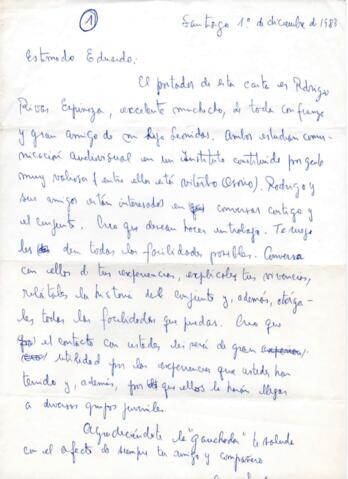 1
Santiago 1º de diciembre de 1983
Estimado Eduardo:
El portador de esta carta es Rodrigo
Rivas Espinoza, excelente muchacho, de toda confianza
y gran amigo de mi hijo Leonidas. Ambos estudian comu-
nicación audiovisual en un instituto constituido por gente
muy valiosa (entre ellos está Osorio). Rodrigo y
sus amigos están interesados en conversar contigo y
el conjunto. Creo que desean hacer un trabajo. Te ruego
les den todas las facilidades posibles. Conversa
con ellos de tus experiencias, explícales tus vivencias,
relátales la historia del conjunto y, además, otórga-
les todas las facilidades que puedas. Creo que
el contacto con ustedes les será de gran
utilidad por las experiencias que ustedes han
tenido y, además, porque ellos lo harán llegar
a diversos grupos juveniles.
Agradeciéndote la "gauchada" te saluda
con el afecto de siempre tu amigo y compañero